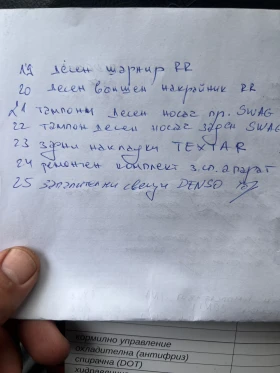 19 десен шарнир RR
20 десен външен накрайник RR
21 тампони десен носач пр. SWAG
22 тампон десен носач заден SWAG
23 задни накладки TEXTAR
24 ремонтен комплект з.сп. апарат
25 запалителни свещи DENSO
кормилно управление
охладителна (антифриз)
спирачна (DOT)